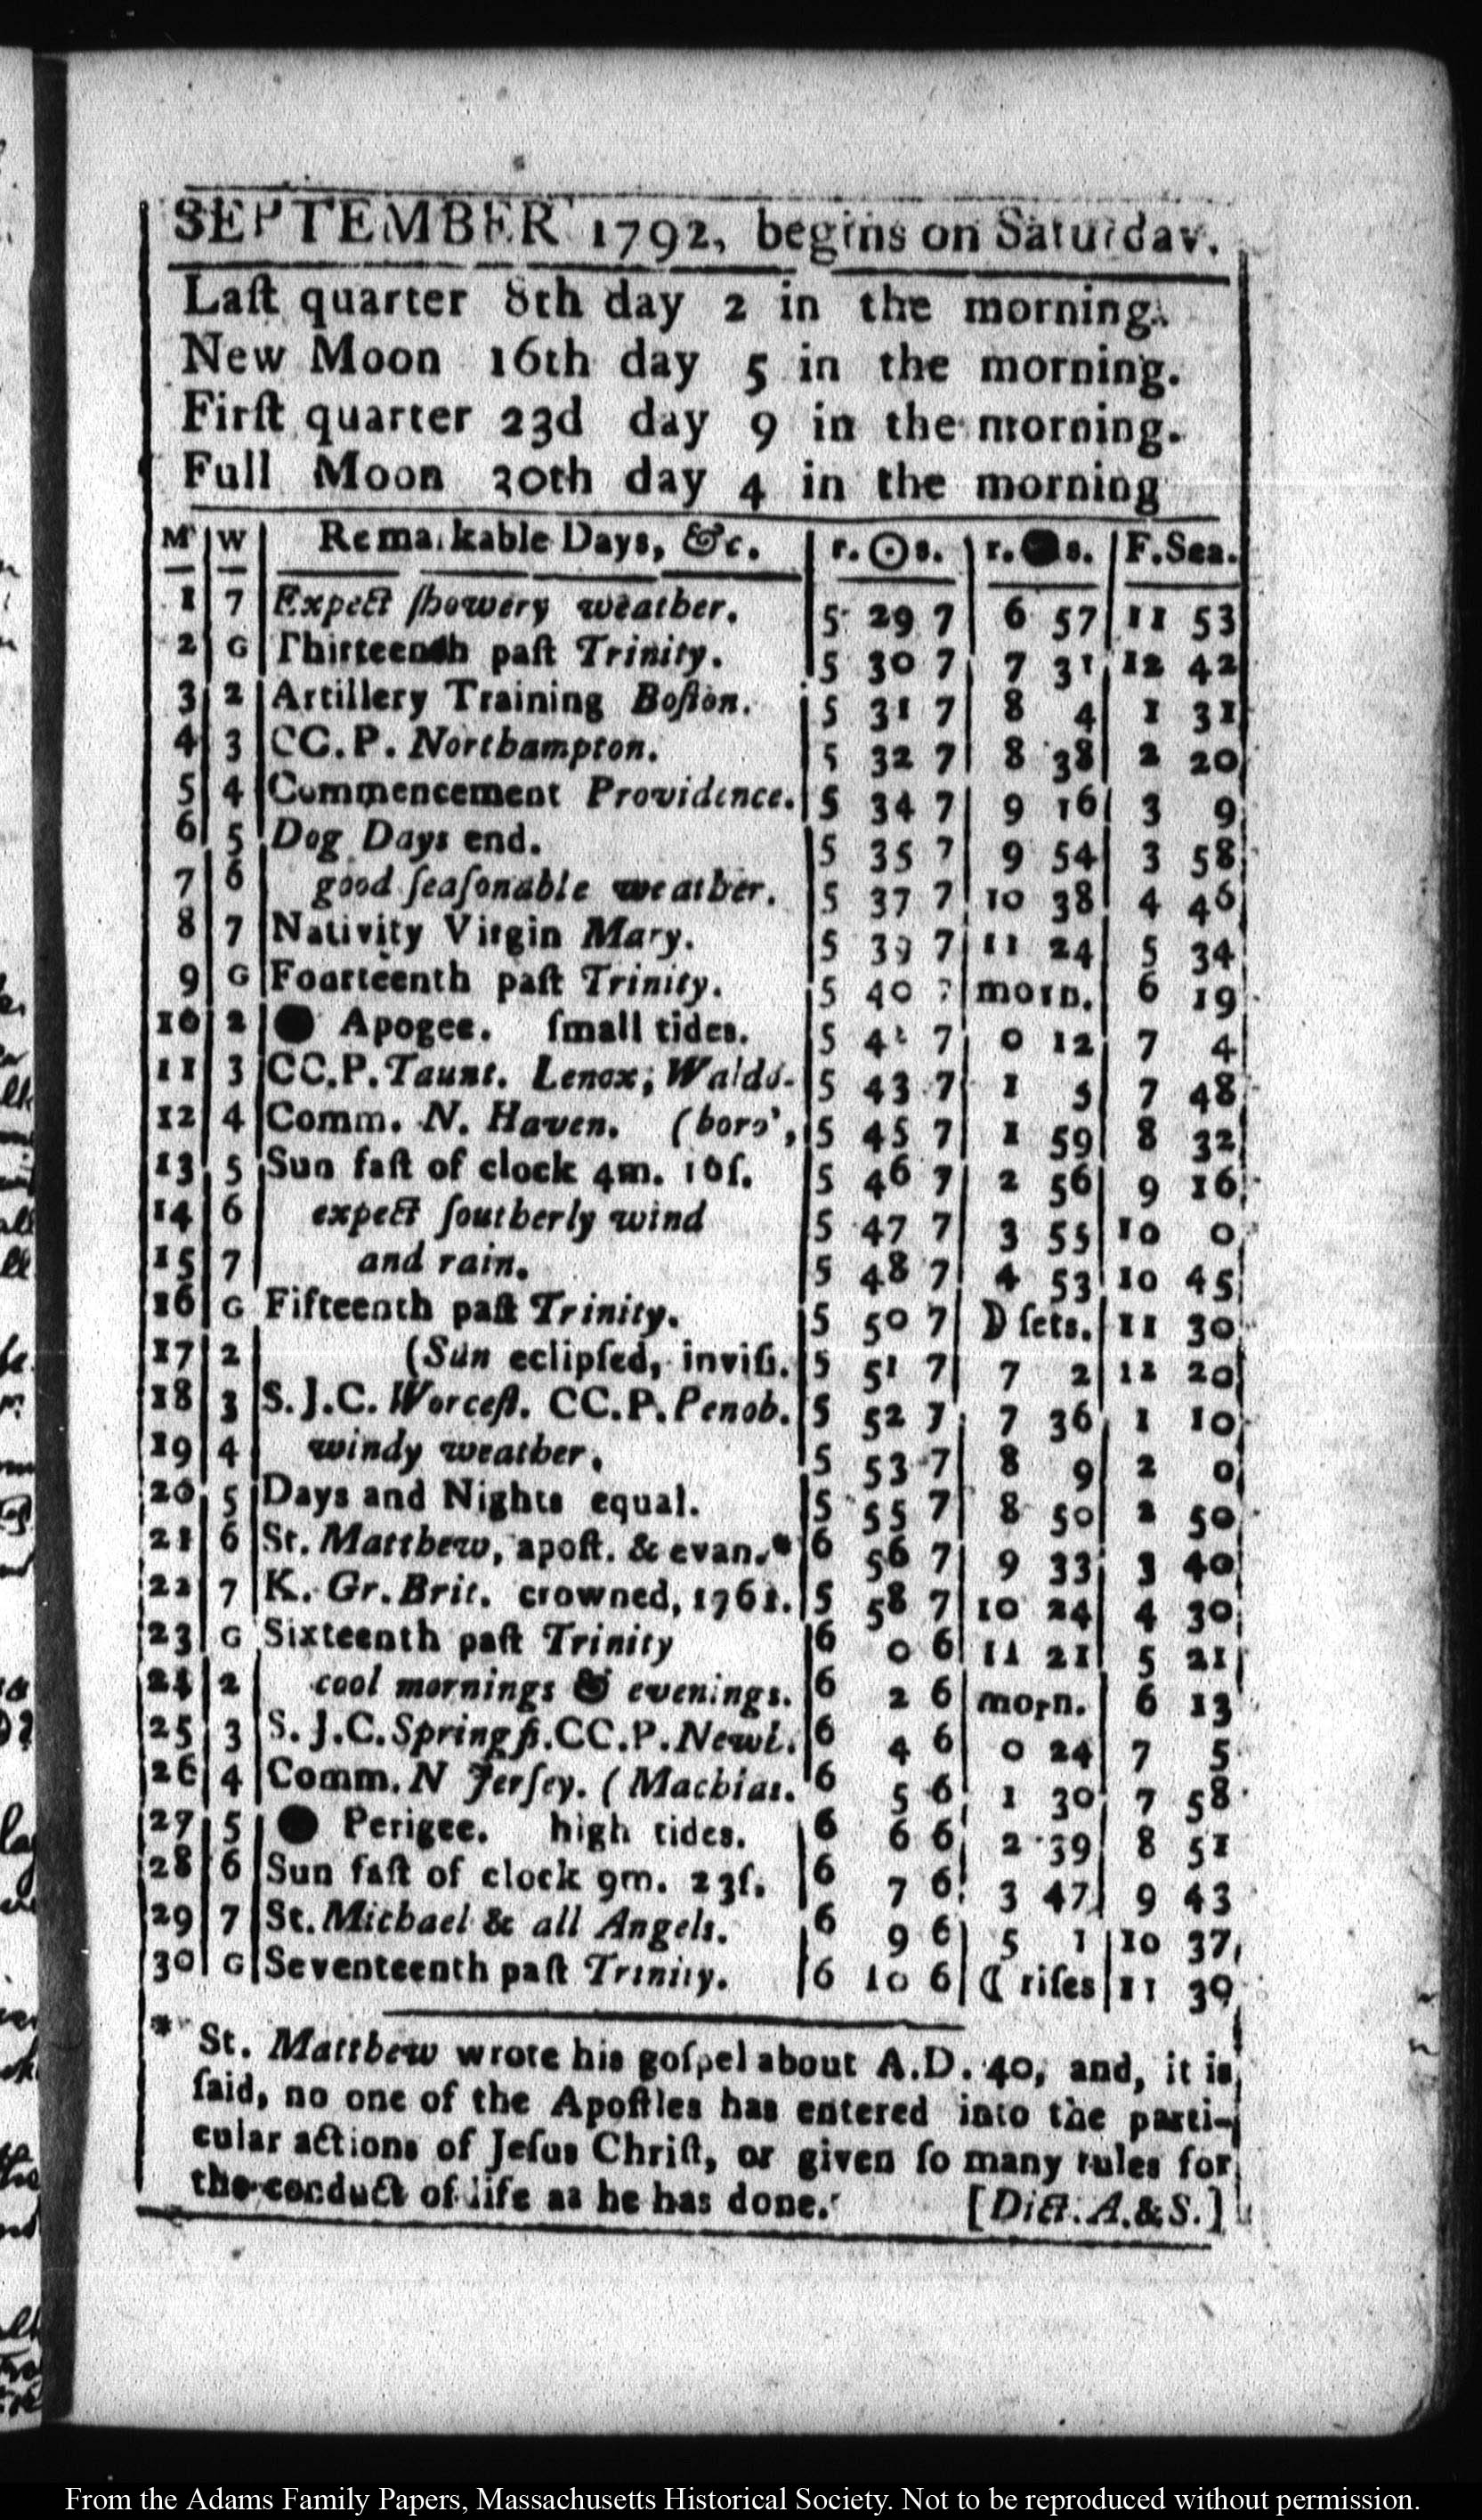 SEPTEMBER 1792, begins on Saturday.
Laſt quarter 8th day 2 in the morning.
New Moon 16th day 5 in the morning.
Firſt quarter 23d day 9 in the morning.
Full Moon 30th day 4 in the morning
M W Remarkable Days, &c. r. ☉ s. r. ● s. F. Sea.
1 7 Expect ſhowery weather. 5 29 7 6 57 11 53
2 G Thirteenth paſt Trinity. 5 30 7 7 31 12 42
3 2 Artillery Training Boſton. 5 31 7 8 4 1 31
4 3 CC. P. Northampton. 5 32 7 8 38 2 20
5 4 Commencement Providence. 5 34 7 9 16 3 9
6 5 Dog Days end. 5 35 7 9 54 3 58
7 6 good ſeaſonable weather. 5 37 7 10 38 4 46
8 7 Nativity Virgin Mary. 5 39 7 11 24 5 34
9 G Foarteenth paſt Trinity. 5 40 7 morn. 6 19
10 2 ● Apogee. ſmall tides. 5 41 7 0 12 7 4
11 3 CC.P. Taunt. Lenox, Waldo- 5 43 7 1 5 7 48
12 4 Comm. N. Haven. (boro', 5 45 7 1 59 8 32
13 5 Sun faſt of clock 4m. 10ſ. 5 46 7 2 56 9 16
14 6 expect ſoutherly wind 5 47 7 3 55 10 0
15 7 and rain. 5 48 7 4 53 10 45
16 G Fifteenth paſt Trinity. 5 50 7 ☽ ſets. 11 30
17 2 (Sun eclipſed, inviſi. 5 51 7 7 2 12 20
18 3 S.J.C. Worceſt. CC.P. Penob. 5 52 7 7 36 1 10
19 4 windy weather. 5 53 7 8 9 2 0
20 5 Days and Nights equal. 5 55 7 8 50 2 50
21 6 St. Matthew, apoſt. & evan.* 6 56 7 9 33 3 40
22 7 K. Gr. Brit. crowned, 1761. 5 58 7 10 24 4 30
23 G Sixteenth paſt Trinity 6 0 6 11 21 5 21
24 2 cool mornings & evenings. 6 2 6 morn. 6 13
25 3 S. J.C. Springf. CC.P. Newb. 6 4 6 0 24 7 5
26 4 Comm. N Jerſey. (Machias. 6 5 6 1 30 7 58
27 5 ● Perigee. high tides. 6 6 6 2 39 8 51
28 6 Sun faſt of clock 9m. 23ſ. 6 7 6 3 47 9 43
29 7 St. Michael & all Angels. 6 9 6 5 1 10 37
30 G Seventeenth paſt Trinity. 6 10 6 ☾ riſes 11 39
* St. Matthew wrote his goſpel about A.D. 40, and, it is
ſaid, no one of the Apoſtles has entered into the parti-
cular actions of Jeſus Chriſt, or given ſo many rules for
the conduct of life as he has done. [Dict. A. & S.]
From the Adams Family Papers, Massachusetts Historical Society. Not to be reproduced without permission.